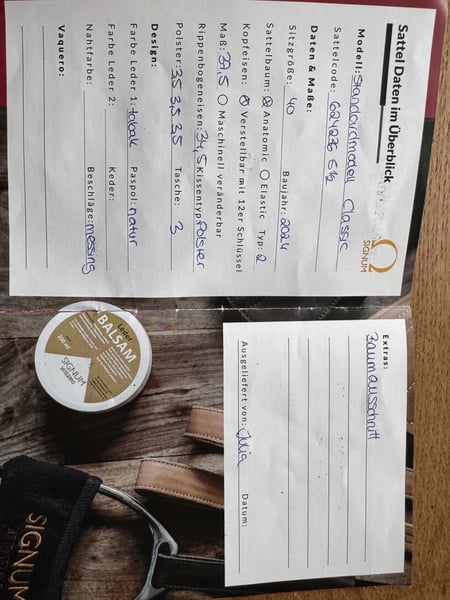 Sattel Daten im Überblick
SIGNUM
Modell: Standardmodell Classic
Sattelcode: 624236 S½
Daten & Maße:
Sitzgröße: 40 Baujahr: 2024
Sattelbaum: Anatomic Elastic Typ: 2
Kopfeisen: Verstellbar mit 12er Schlüssel
Maß: 39,5 Maschinell veränderbar
Rippenbogeneisen: 34,5 Kissentyp: Polster
Polster: 35 35 35 Tasche: 3
Design:
Farbe Leder 1: tabak Paspol: natur
Farbe Leder 2: Keder:
Nahtfarbe: Beschläge: messing
Vaquero:
Extras:
Baumausschnitt
Ausgeliefert von: Julia Datum:
Leder
BALSAM
SIGNUM
SATTELSERVICE
SIGNUM